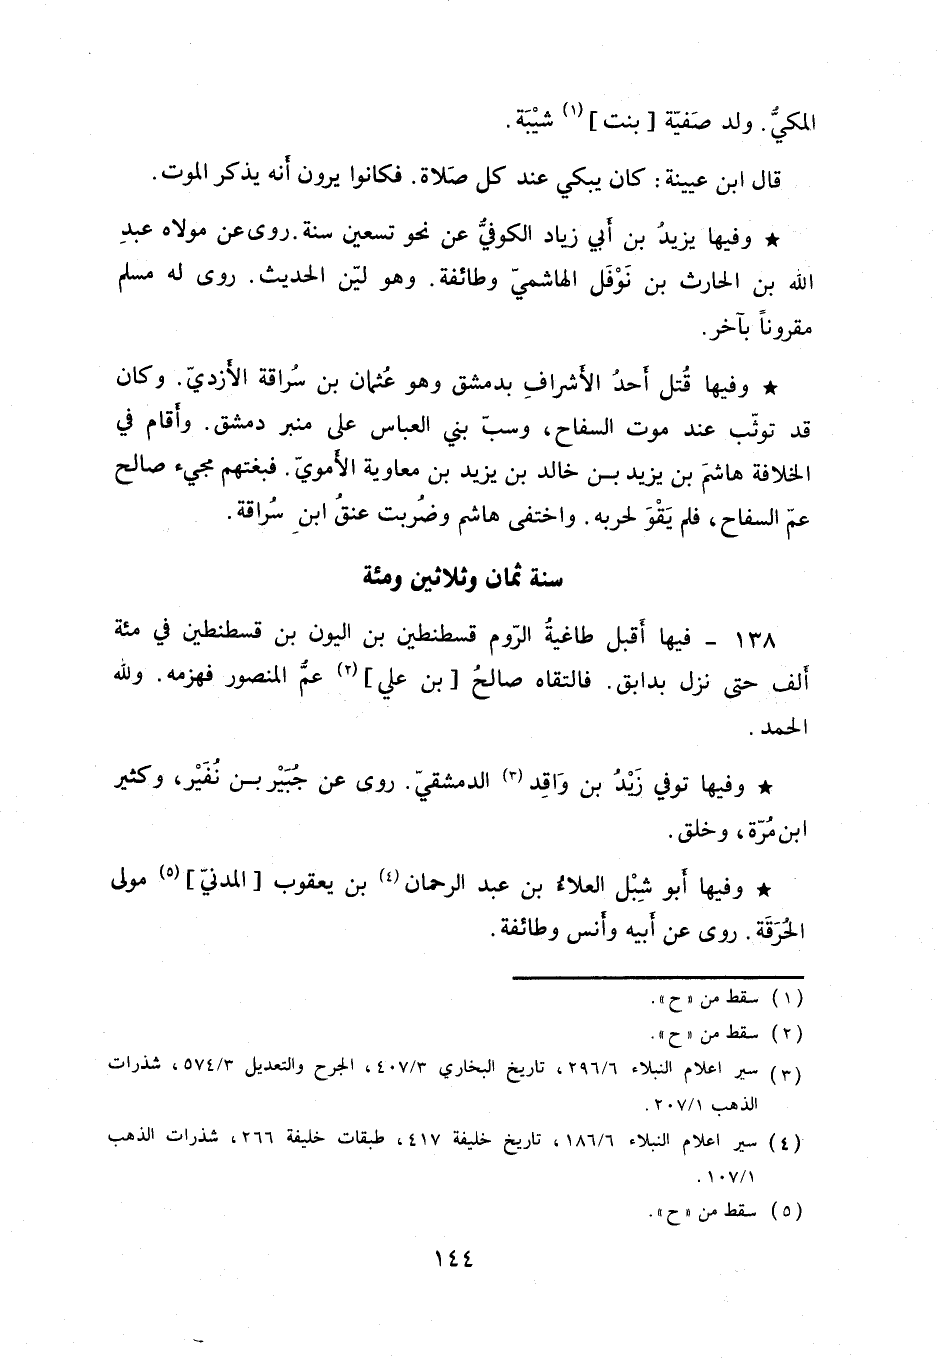 المكيُّ. ولد صَفيّة [ بنت ] (١) شَيْبَة.
قال ابن عيينة: كان يبكي عند كل صَلاة. فكانوا يرون أَنه يذكر الموت.
★ وفيها يزيدُ بن أَبي زياد الكوفيُّ عن نحو تسعين سنة. روى عن مولاه عبدِ
الله بن الحارث بن نَوْفَل الهاشميّ وطائفة. وهو ليّن الحديث. روى له مسلم
مقروناً بآخر.
★ وفيها قُتل أَحدُ الأَشرافِ بدمشق وهو عُثمان بن سُراقة الأَزديّ. وكان
قد توثّب عند موت السفاح، وسبّ بني العباس على منبر دمشق. وأَقام في
الخلافة هاشمَ بن يزيد بن خالد بن يزيد بن معاوية الأُمويّ. فبغتهم مجيء صالح
عمّ السفاح، فلم يَقْوَ لحربه. واختفى هاشم وضُربت عنقُ ابنِ سُراقة.
سنة ثمان وثلاثين ومئة
١٣٨ - فيها أَقبل طاغيةُ الرّوم قسطنطين بن اليون بن قسطنطين في مئة
أَلف حتى نزل بدابق. فالتقاه صالحُ [ بن علي ] (٢) عمُّ المنصور فهزمه. ولله
الحمد.
★ وفيها توفي زَيْدُ بن وَاقِد (٣) الدمشقيّ. روى عن جُبَيْر بن نُفَيْر، وكثير
ابن مُرّة، وخلق.
★ وفيها أَبو شِبْل العلاءُ بن عبد الرحمان (٤) بن يعقوب [ المدنيّ ] (٥) مولى
الحُرَقَة. روى عن أَبيه وأَنس وطائفة.
(١) سقط من «ح».
(٢) سقط من «ح».
(٣) سير اعلام النبلاء ٢٩٦/٦، تاريخ البخاري ٤٠٧/٣، الجرح والتعديل ٥٧٤/٣، شذرات
الذهب ٢٠٧/١.
(٤) سير اعلام النبلاء ١٨٦/٦، تاريخ خليفة ٤١٧، طبقات خليفة ٢٦٦، شذرات الذهب
١٠٧/١.
(٥) سقط من «ح».
١٤٤